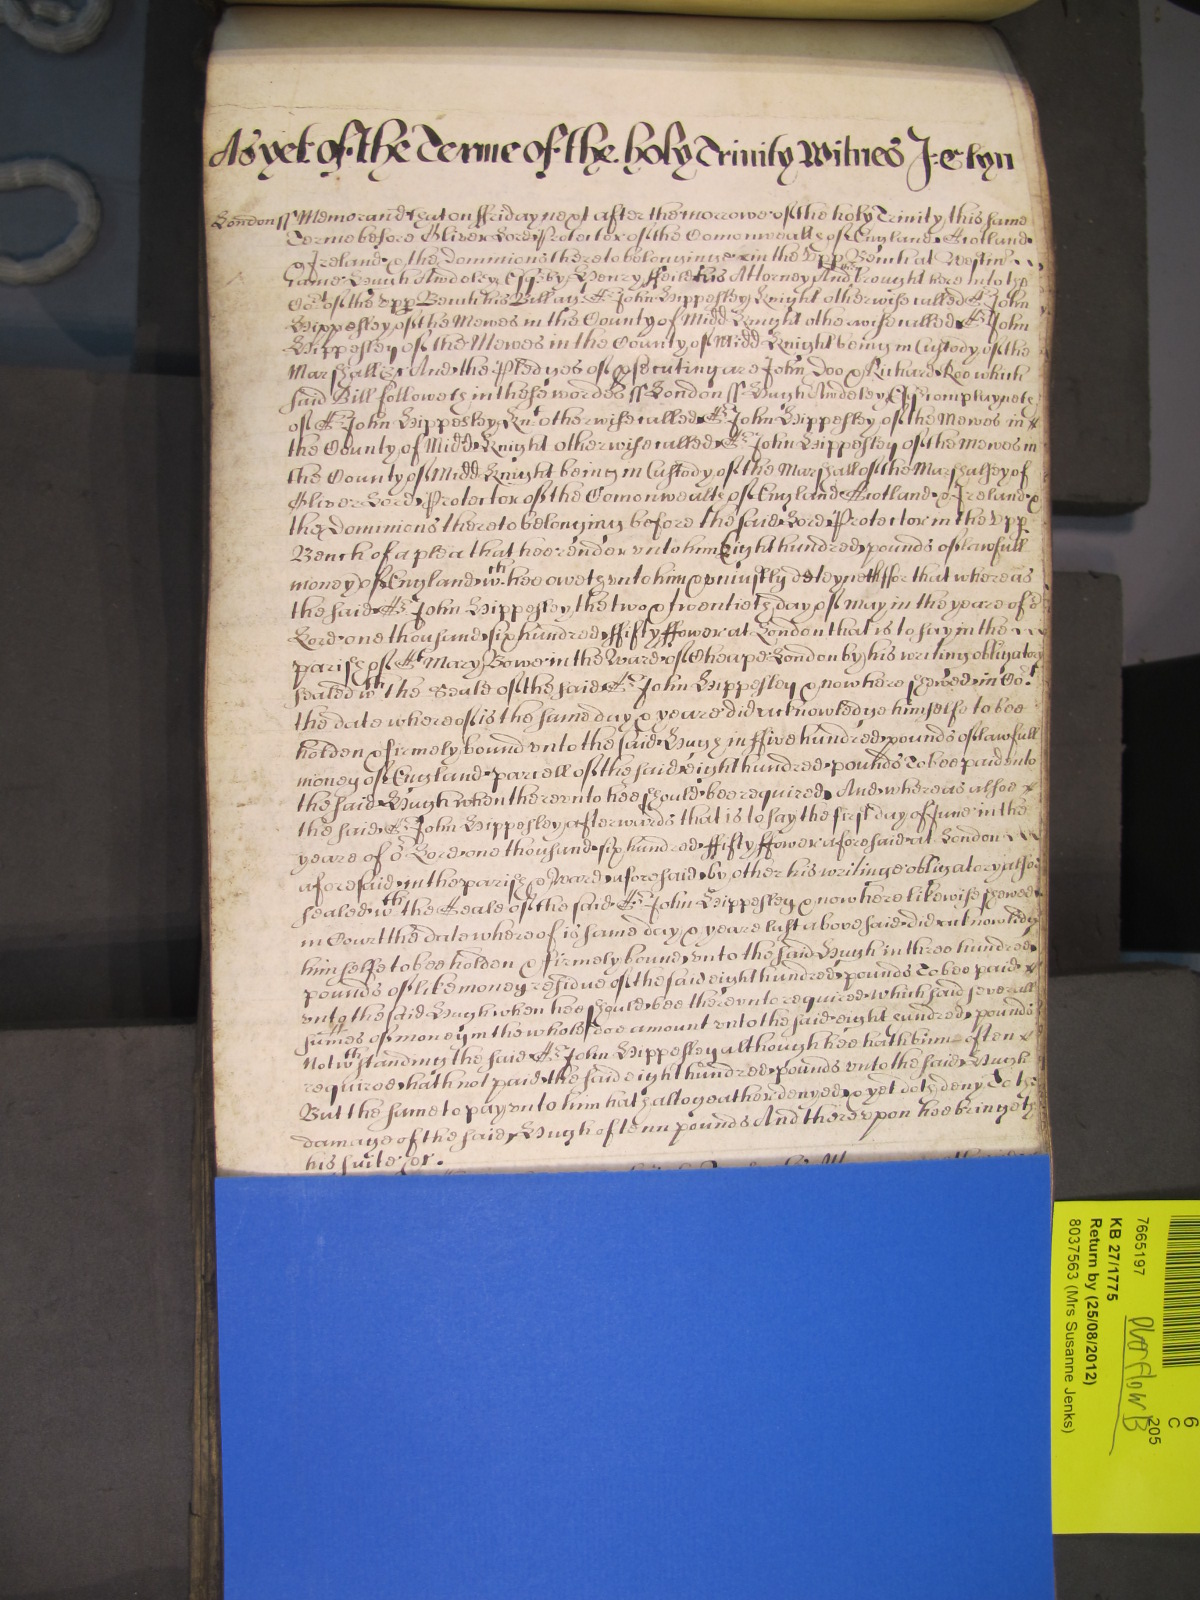 As yet of the Terme of the holy Trinity Witnes J: Clyn
London ss Memorand that on ffriday next after the morrowe of the holy Trinity this same
Terme before Oliver Lord Protector of the Comonwealth of England Scotland
& Ireland & the Dominions thereto belonginge in the Upp Bench at Westm
came Hugh Awdeley Esq by Henry ffeild his Attorney And brought here into the
Co:t of the upp Bench his Bill ag:t S:r John Hippesley Knight otherwise called S:r John
Hippesley of the Mewes in the County of Midd Knight otherwise called S:r John
Hippesley of the Mewes in the County of Midd Knight being in Custody of the
Marshall &c And the Pledges of p'secuting are John Doo & Richard Roo which
said Bill followeth in these wordes ss London ss Hugh Awdeley Esq complayneth
of S:r John Hippesley Kn:t otherwise called S:r John Hippesley of the Mewes in
the County of Midd Knight otherwise called S:r John Hippesley of the Mewes in
the County of Midd Knight being in Custody of the Marshall of the Marshalsey of
Oliver Lord Protector of the Comonwealth of England Scotland & Ireland &
the Dominions thereto belonging before the said Lord Protector in the upp
Bench of a plea that hee render unto him Eight hundred pounds of lawfull
money of England w:ch hee oweth unto him & uniustly deteyneth ffor that whereas
the said S:r John Hippesley the two & twentieth day of May in the yeare of o:r
Lord one thousand six hundred ffifty ffower at London that is to say in the
parish of S:t Mary Bowe in the Ward of Cheape London by his writing obligatory
sealed w:th the Seale of the said S:r John Hippesley & now here shewed in Co:t
the date whereof is the same day & yeare did acknowledge himselfe to bee
holden & firmely bound unto the said Hugh in ffive hundred pounds of lawfull
money of England parcell of the said eight hundred pounds To bee paid unto
the said Hugh when thereunto hee should bee required And whereas alsoe
the said S:r John Hippesley afterwards that is to say the first day of June in the
yeare of o:r Lord one thousand six hundred ffifty ffower aforesaid at London
aforesaid in the parish & Ward aforesaid by other his writinge obligatory alsoe
sealed w:th the Seale of the said S:r John Hippesley & now here likewise shewed
in Court the date whereof is same day & yeare last abovesaid did acknowledg
himselfe to bee holden & firmely bound unto the said Hugh in three hundred
pounds of like money residue of the said eight hundred pounds To bee paid
unto the said Hugh when hee should bee thereunto required which said severall
sumes of money in the whole doe amount unto the said eight hundred pounds
Notw:thstanding the said S:r John Hippesley although hee hath binn often
required hath not paid the said eight hundred pounds unto the said Hugh
But the same to pay unto him hath altogeather denyed & yet doth deny To the
damage of the said Hugh of tenn pounds And thereupon hee bringeth
his suite &c.
7665197
KB 27/1775
Return by (25/08/2012)
8037563 (Mrs Susanne Jenks)
Overflow B
6
C
205